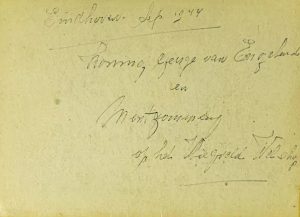 Eindhoven. Sep. 1944
Koning George van Engeland
en
Montgomery
op het Vliegveld